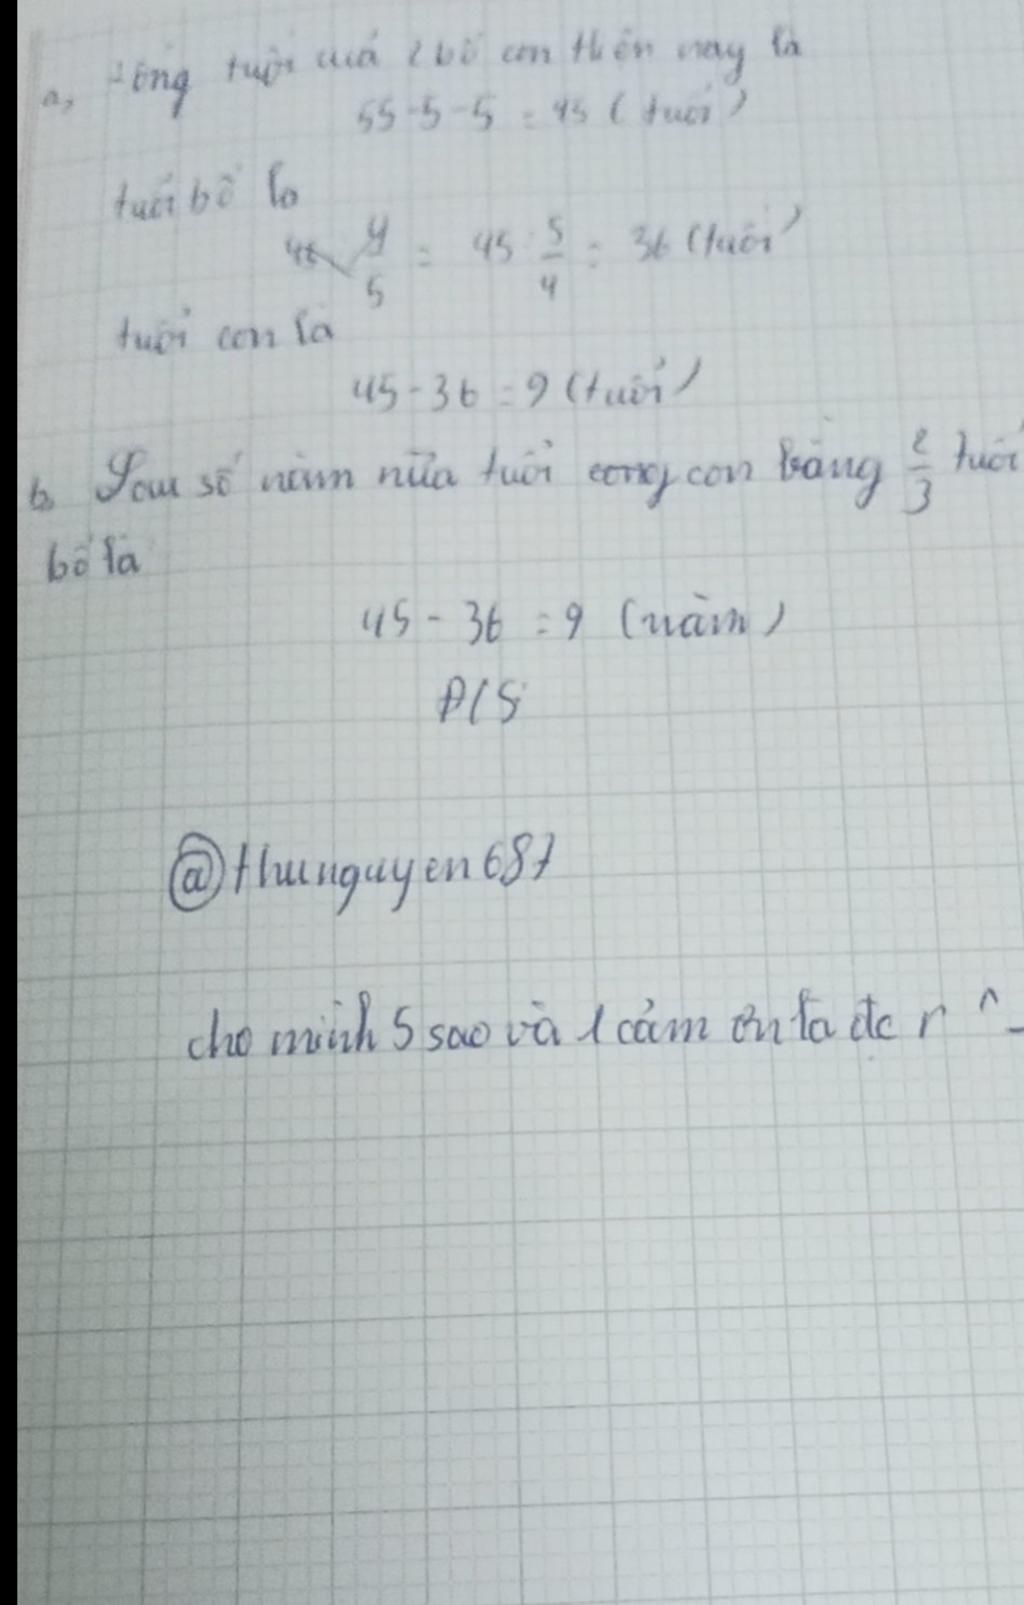 a, Tổng tuổi cuả 2 bố con hiện nay là
55-5-5 = 45 (tuổi)
tuổi bố là
45 4/5 = 45 : 5/4 = 36 (tuổi)
tuổi con là
45-36 = 9 (tuổi)
b, Sau số năm nữa tuổi con bằng 2/3 tuổi
bố là
45 - 36 = 9 (năm)
Đ/S
@thunguyen687
cho mình 5 sao và 1 cảm ơn là đc r ^_